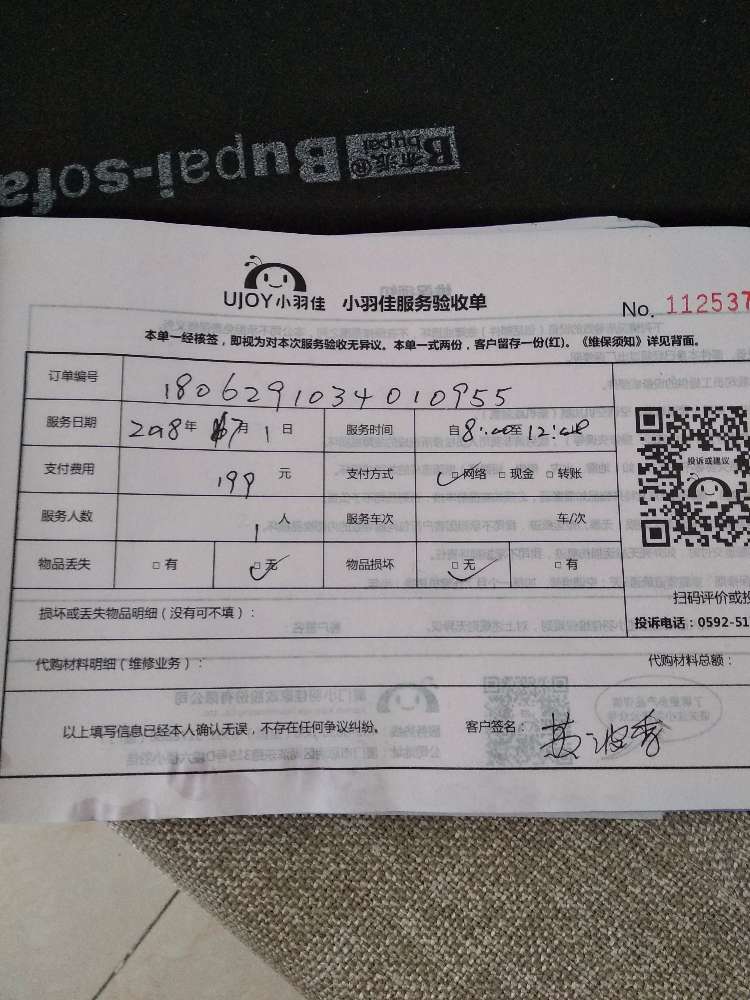 Bupai-sofa
布派®
bupai
UJOY小羽佳 小羽佳服务验收单
No. 112537
本单一经核签，即视为对本次服务验收无异议。本单一式两份，客户留存一份(红)。《维保须知》详见背面。
订单编号 1806291034010955
服务日期 2018年 7月 1日 服务时间 自8:00至12:00
支付费用 199 元 支付方式 □网络 □现金 □转账
服务人数 1 人 服务车次 车/次
物品丢失 □有 □无 物品损坏 □无 □有
投诉或建议
扫码评价或投
损坏或丢失物品明细（没有可不填）：
投诉电话：0592-51
代购材料明细（维修业务）： 代购材料总额：
以上填写信息已经本人确认无误，不存在任何争议纠纷。 客户签名：